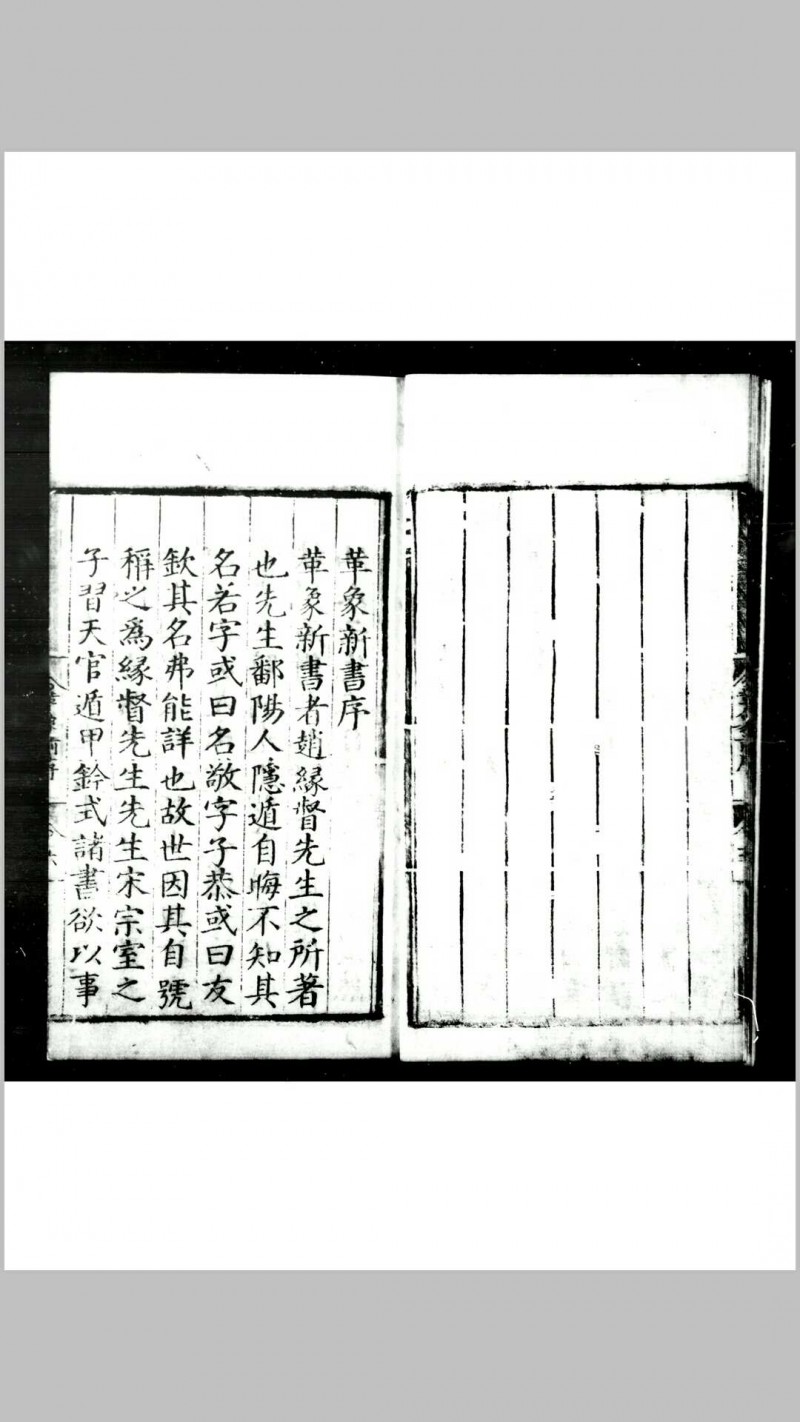 革象新書序
革象新書者趙緣督先生之所著
也先生鄱陽人隱遁自晦不知其
名若字或曰名敬字子恭或曰友
欽其名弗能詳也故世因其自號
稱之爲緣督先生先生宋宗室之
子習天官遁甲鈐式諸書欲以事